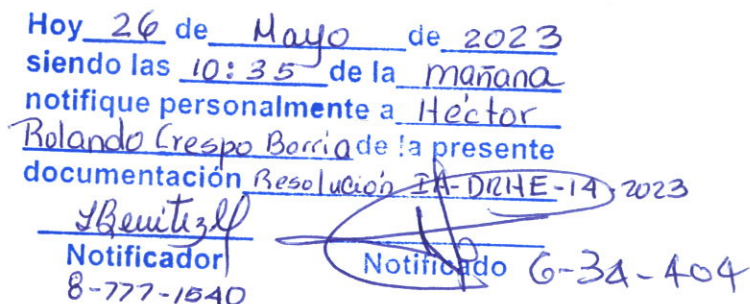 Hoy 26 de Mayo de 2023
siendo las 10:35 de la mañana
notifique personalmente a Héctor
Rolando Crespo Borria de la presente
documentación Resolución IA-DRHE-14, 2023
Notificador Notificado 6-34-404
8-777-1540